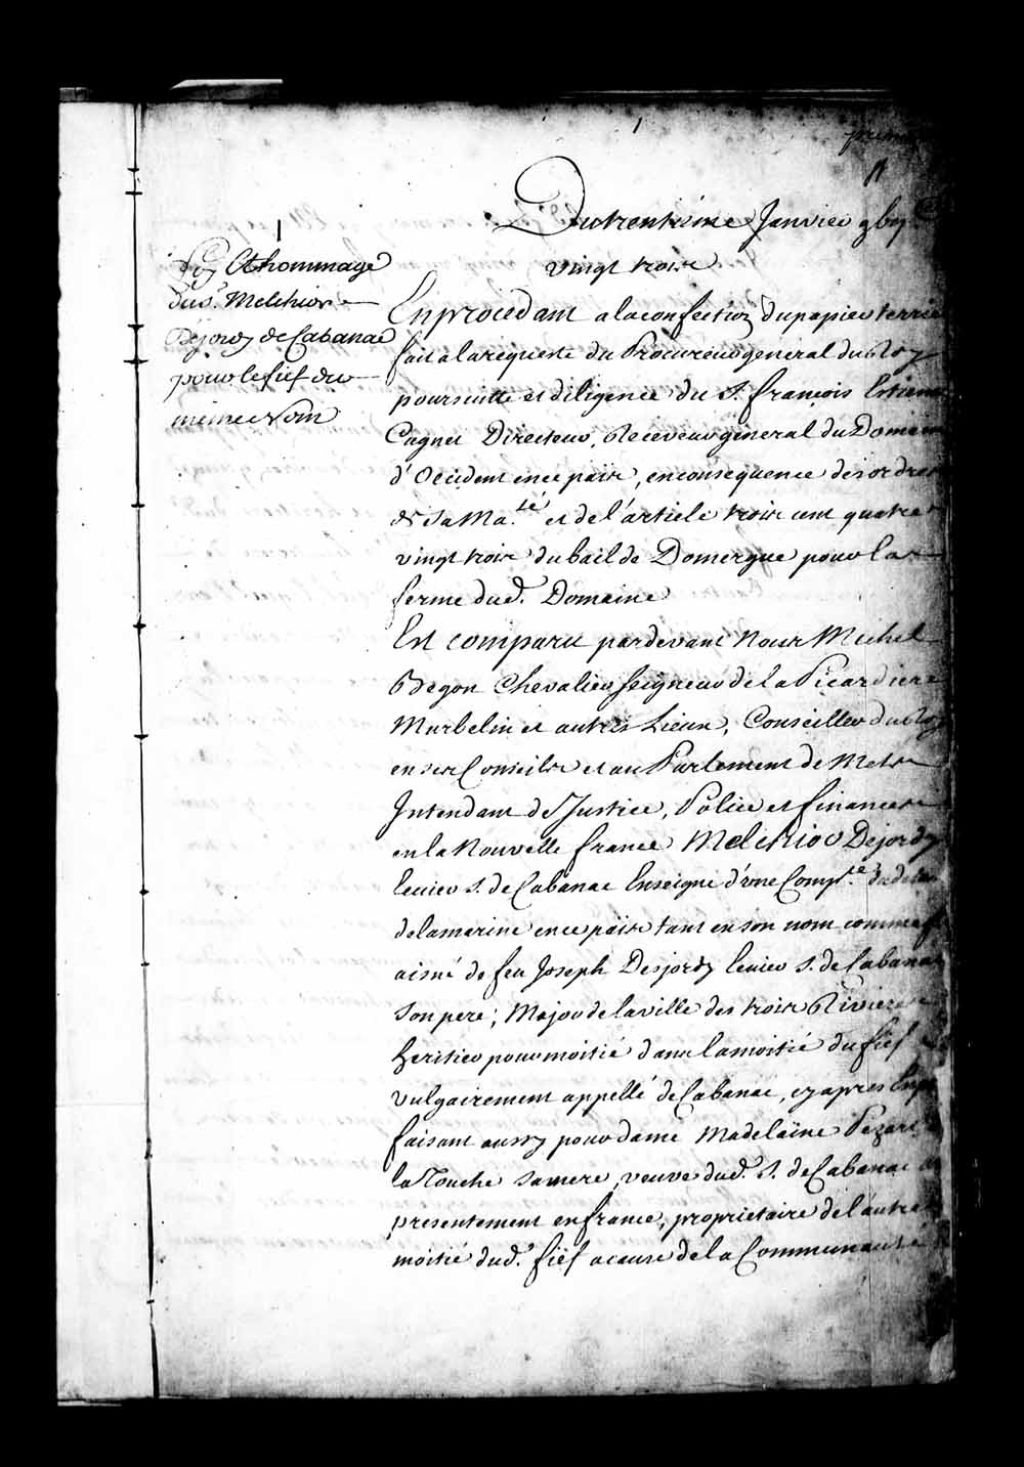 1
1
Du trentiéme Janvier gbij.
vingt trois
Foy Et hommage
du s.r Melchior
Dejordy de Cabanac
pour le fief du
méme Nom
En procedant a la confection du papier terrier
fait a la requeste du Procureur general du Roy
poursuitte et diligence du S. françois Estienne
Cugnet Directeur, Receveur general du Domaine
d'Occident en ce païs, en consequence des ordres
de Sa Ma.té et de l'article trois cent quatre
vingt trois du bail de Domergue pour la
ferme dud. Domaine
Est comparu pardevant Nous Michel
Begon Chevalier seigneur de la Picardiere
Murbelin et autres Lieux, Conseiller du Roy
en ses Conseils et au Parlement de Mets
Intendant de Justice, Police et finances
en la Nouvelle france Melchior Dejordy
Ecuier S. de Cabanac Enseigne d'une Comp.ie
de la marine en ce païs tant en son nom comme
aisné de feu Joseph Desjordy Ecuier S. de Cabanac
Son pere; Major de la ville des trois Rivieres
heritier pour moitié dans la moitié du fief
vulgairement appellé de Cabanac, cy apres
faisant aussy pour dame Madelaine Pezard
la Touche sa mere, veuve dud. S. de Cabanac
presentement en france, proprietaire de l'autre
moitié dud. fief a cause de la Communauté